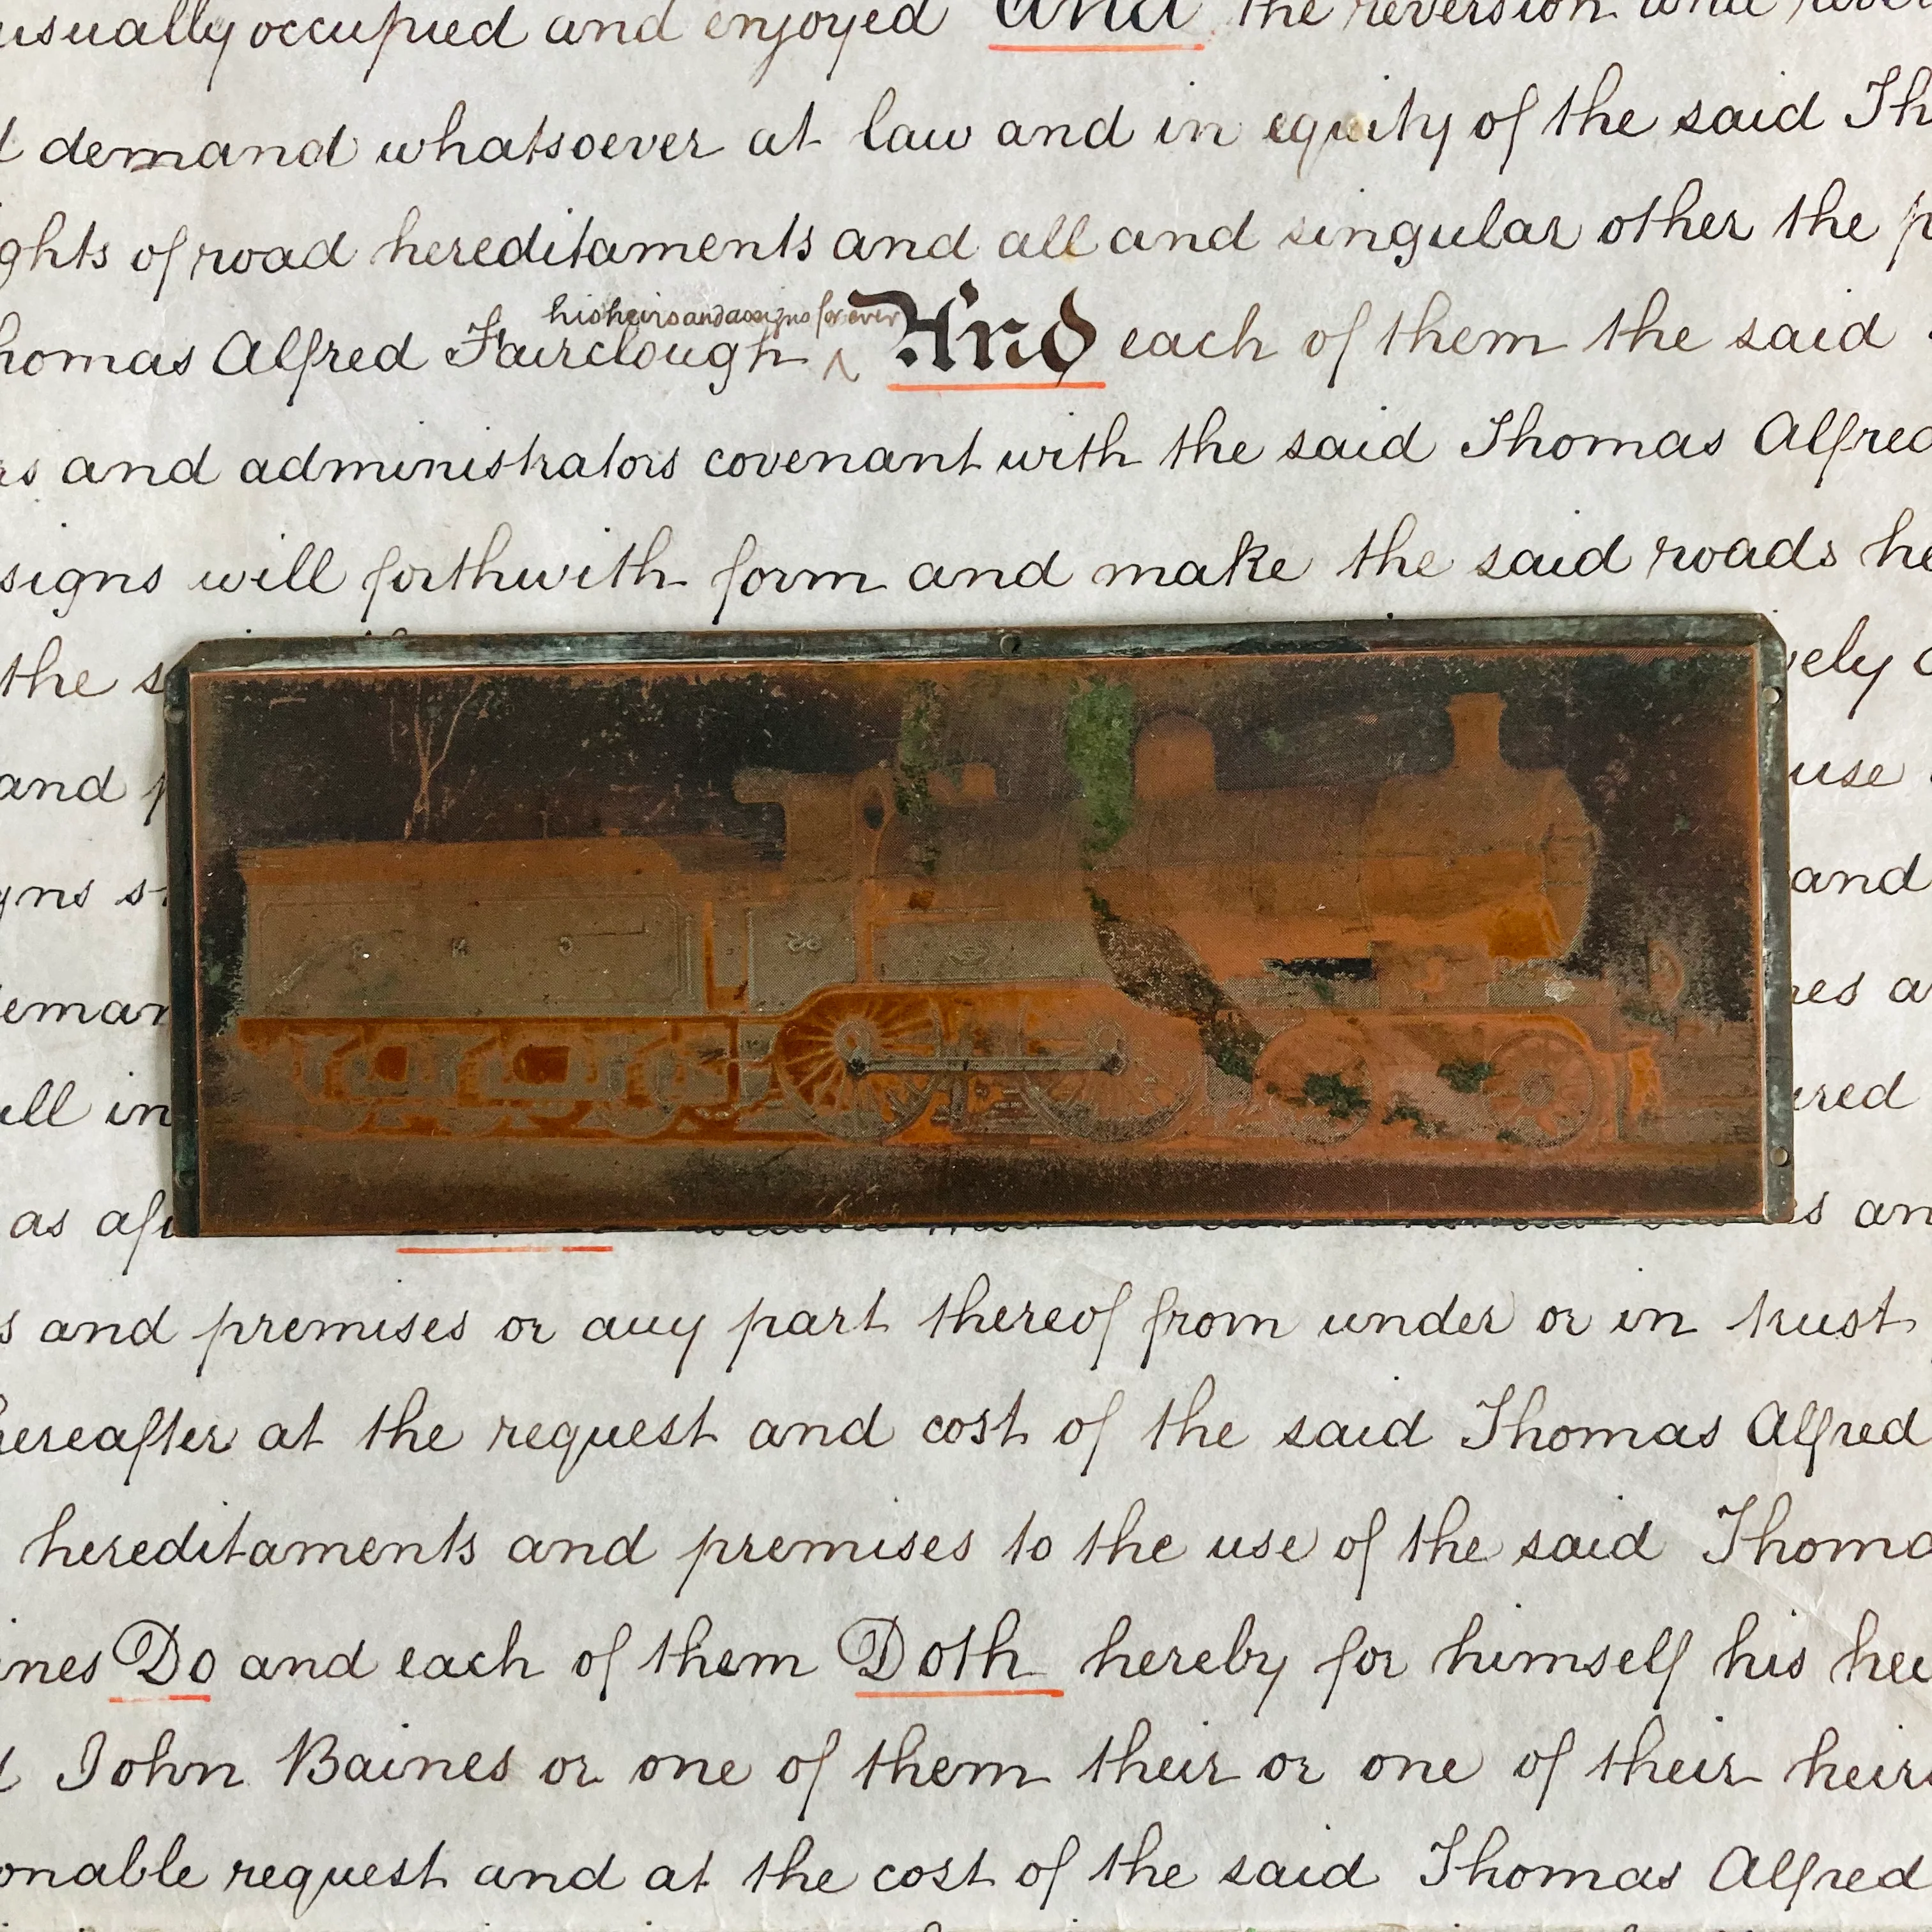 usually occupied and enjoyed and the reversion and
demand whatsoever at law and in equity of the said Th
ghts of road hereditaments and all and singular other the p
his heirs and assigns for ever
homas Alfred Fairclough ^ And each of them the said
rs and administrators covenant with the said Thomas Alfred
signs will forthwith form and make the said roads he
the s vely
and use
gns s and
deman es a
all in ered
as af s an
s and premises or any part thereof from under or in trust
hereafter at the request and cost of the said Thomas Alfred
hereditaments and premises to the use of the said Thoma
ines Do and each of them Doth hereby for himself his hei
d John Baines or one of them their or one of their heirs
onable request and at the cost of the said Thomas Alfred